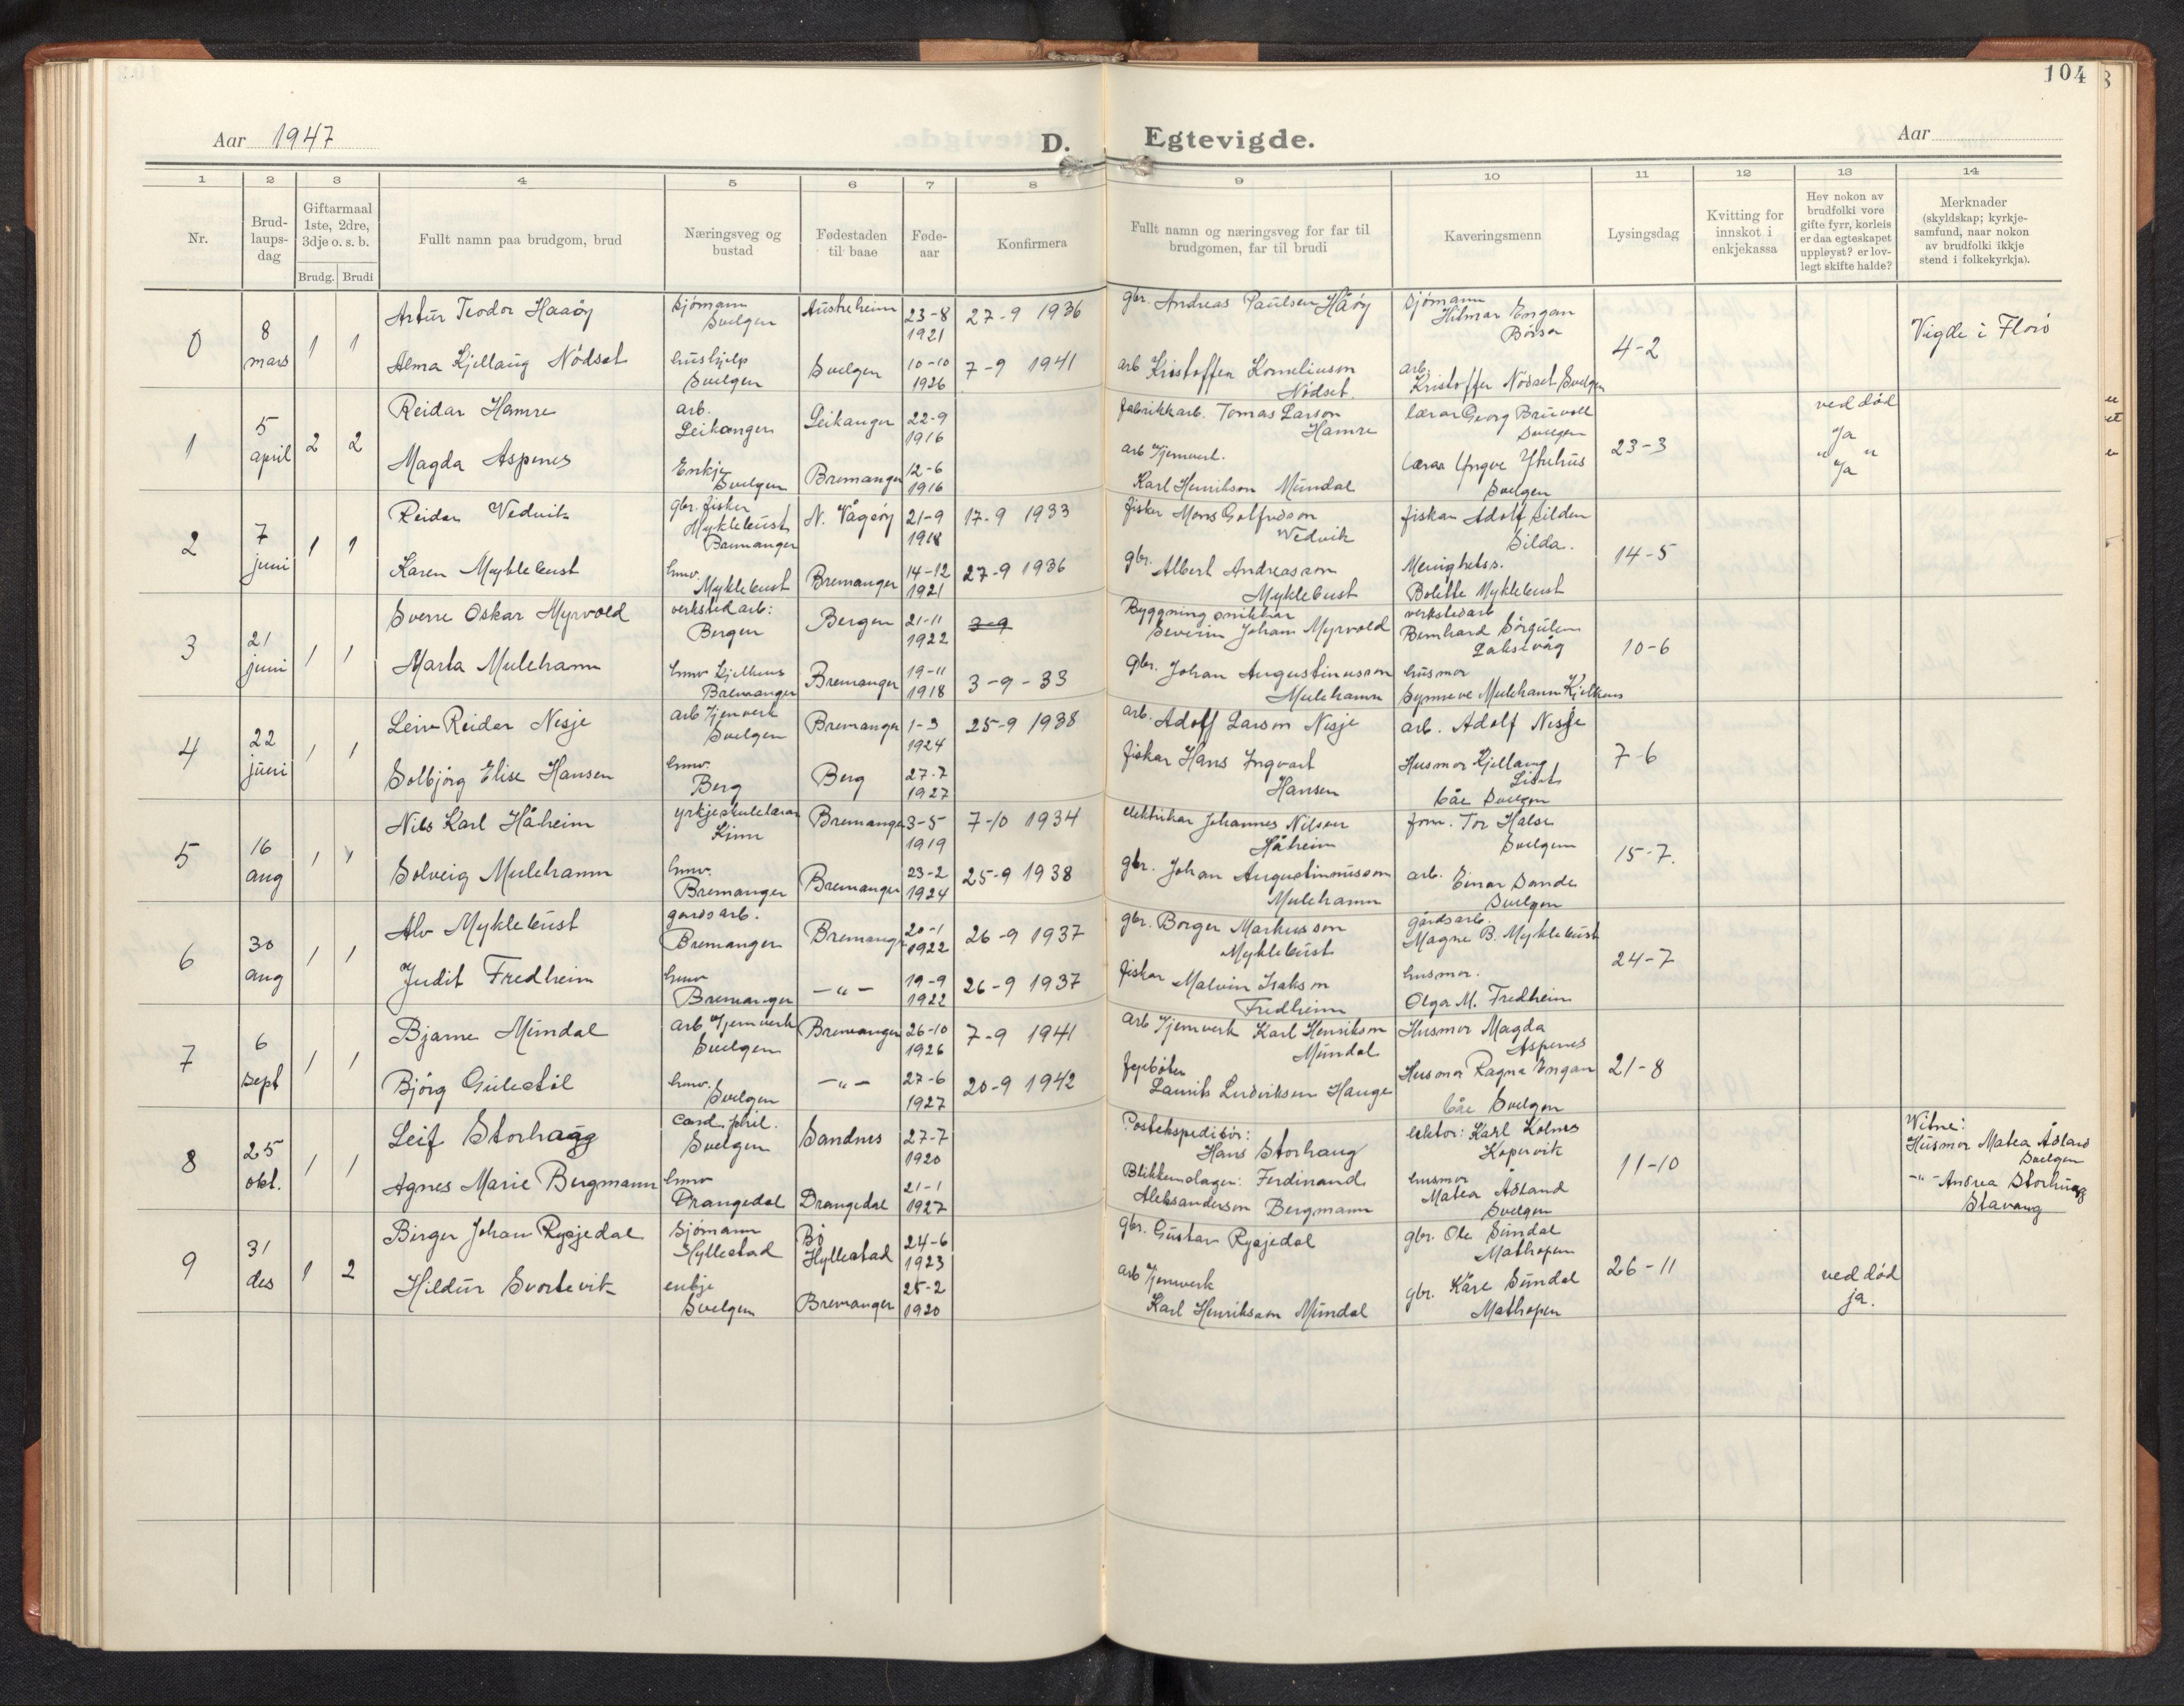 104
Aar 1947
D. Egtevigde.
Aar
1 2 3 4 5 6 7 8 9 10 11 12 13 14
Nr.
Brud-
laups-
dag
Giftarmaal
1ste, 2dre,
3dje o. s. b.
Brudg. Brudi
Fullt namn paa brudgom, brud
Næringsveg og
bustad
Fødestaden
til baae
Føde-
aar
Konfirmera
Fullt namn og næringsveg for far til
brudgomen, far til brudi
Kaveringsmenn
Lysingsdag
Kvitting for
innskot i
enkjekassa
Hev nokon av
brudfolki vore
gifte fyrr, korleis
er daa egteskapet
uppløyst? er lov-
legt skifte halde?
Merknader
(skyldskap; kyrkje-
samfund, naar nokon
av brudfolki ikkje
stend i folkekyrkja).
0
8
mars
1 1
Artur Teodor Haaöy
Sjömann
Svelgen
Austreheim
23-8
1921
27-9 1936
gbr. Andreas Paulsen Håöy
Sjömann
Hilmar Engan
Börsa
4-2
Vigde i Florö
Alma Kjellaug Nödset
hushjelp
Svelgen
Svelgen
10-10
1926
7-9 1941
arb Kristoffer Korneliuson
Nödset.
arb.
Kristoffer Nödset Svelgen
1
5
april
2 2
Reidar Hamre
arb.
Leikanger
Leikanger
22-9
1916
fabrikkarb. Tomas Larson
Hamre
lærar Georg Bruvoll
Svelgen
23-3
ved död
Ja
Magda Aspenes
Enkje
Svelgen
Bremanger
12-6
1916
arb Jernverk.
Karl Henrikson Mundal
Lærar Yngve Ytrehus
Svelgen
" "
Ja
2
7
juni
1 1
Reidar Vedvik
gbr. fisker
Myklebust
Bremanger
N. Vågsöy
21-9
1918
17-9 1933
fisker Mons Golfredson
Vedvik
fiskar Adolf Silden
Silda.
14-5
Karen Myklebust
hmv.
Myklebust
Bremanger
14-12
1921
27-9 1936
gbr. Albert Andreasson
Myklebust
Menighetss.
Bolette Myklebust
3
21
juni
1 1
Sverre Oskar Myrvold
verksted arb:
Bergen
Bergen
21-11
1922
3-9
Byggningsnikkar
Severin Johan Myrvold
verkstedarb
Bernhard Sörgulen
Laksevåg
10-6
Marta Mulehamn
hmv Kjelkenes
Bremanger
Bremanger
19-11
1918
3-9-33
gbr. Johan Augustinusson
Mulehamn
husmor
Synneve Mulehamn Kjelkenes
4
22
juni
1 1
Leiv Reidar Nesje
arb Jernverk
Svelgen
Bremanger
1-3
1924
25-9 1938
arb. Adolf Larson Nesje
arb. Adolf Nesje
7-6
Solbjörg Elise Hansen
hmv.
Berg
Berg
27-7
1927
fiskar Hans Ingvart
Hansen
Husmor Kjellaug
Liset
båe Svelgen
5
16
aug
1 1
Nils Karl Håheim
yrkjeskulelærar
Kinn
Bremanger
3-5
1919
7-10 1934
elektrikar Johannes Nilsen
Håheim
form. Tor Halse
Svelgen
15-7.
Solveig Mulehamn
hmv.
Bremanger
Bremanger
23-2
1924
25-9 1938
gbr. Johan Augustinusson
Mulehamn
arb. Einar Sande
Svelgen
6
30
aug
1 1
Alv Myklebust
gardsarb.
Bremanger
Bremanger
20-1
1922
26-9 1937
gbr. Borger Markusson
Myklebust
gårdsarb.
Magne B. Myklebust
24-7
Judit Fredheim
hmv
Bremanger
-"-
19-9
1922
26-9 1937
fiskar Malvin Isakson
Fredheim
husmor.
Olga M. Fredheim
7
6
sept
1 1
Bjarne Mundal
arb Jernverk
Svelgen
Bremanger
26-10
1926
7-9 1941
arb Jernverk Karl Henrikson
Mundal
Husmor Magda
Aspenes
21-8
Björg Gulestöl
hmv.
Svelgen
-"-
27-6
1927
20-9 1942
fyrböter
Laurits Ludviksen Hauge
Husmor Ragna Engan
båe Svelgen
8
25
okt.
1 1
Leif Storhaug
cand. phil.
Svelgen
Sandnes
27-7
1920
Postekspeditör:
Hans Storhaug
lektor: Karl Kolnes
Kopervik
11-10
Vitne:
Husmor Matea Åsland
Svelgen
-"- Andrea Storhaug
Stavang
Agnes Marie Bergmann
hmv
Drangedal
Drangedal
21-1
1927
Blikkenslager: Ferdinand
Aleksanderson Bergmann
husmor
Matea Åsland
Svelgen
9
31
des
1 2
Birger Johan Rysjedal
Sjömann
Hyllestad
Bö
Hyllestad
24-6
1923
gbr. Gustav Rysjedal
gbr. Ole Sundal
Mathopen
26-11
ved död
ja.
Hildur Svortevik
enkje
Svelgen
Bremanger
25-2
1920
arb Jernverk
Karl Henrikson Mundal
gbr. Kåre Sundal
Mathopen